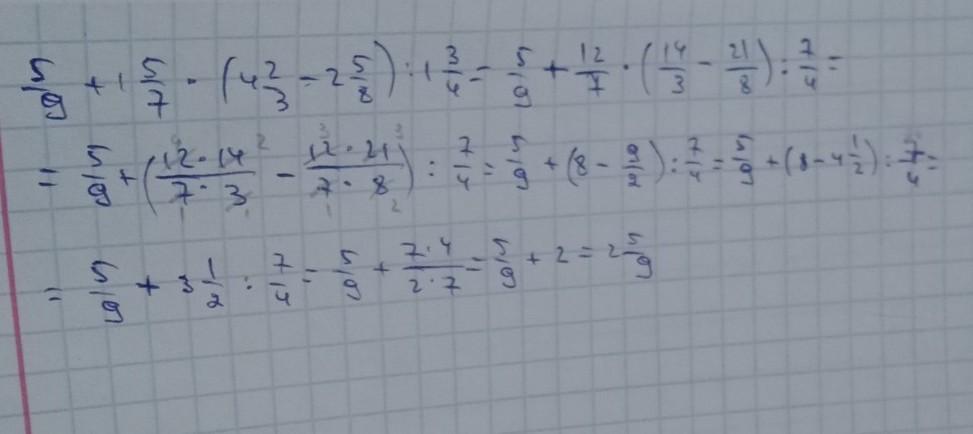 5/9 + 1 5/7 · (4 2/3 - 2 5/8) : 1 3/4 = 5/9 + 12/7 · (14/3 - 21/8) : 7/4 =
= 5/9 + (12·14/7·3 - 12·21/7·8) : 7/4 = 5/9 + (8 - 9/2) : 7/4 = 5/9 + (8 - 4 1/2) : 7/4 =
= 5/9 + 3 1/2 : 7/4 = 5/9 + 7·4/2·7 = 5/9 + 2 = 2 5/9